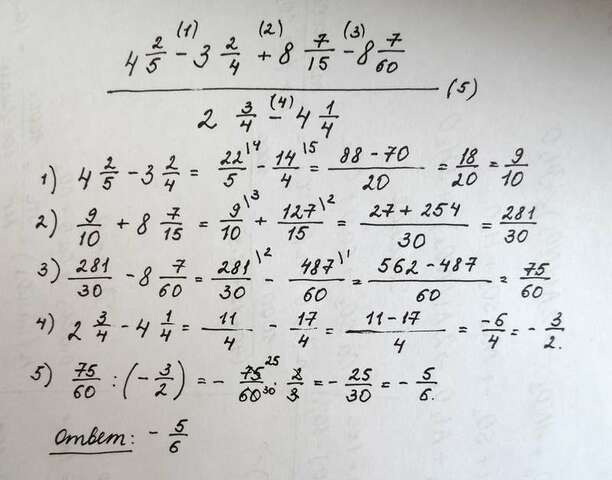 (1) (2) (3)
4 2/5 - 3 2/4 + 8 7/15 - 8 7/60
(4) (5)
2 3/4 - 4 1/4
1) 4 2/5 - 3 2/4 = 22\4/5 - 14\5/4 = 88 - 70/20 = 18/20 = 9/10
2) 9/10 + 8 7/15 = 9\3/10 + 127\2/15 = 27 + 254/30 = 281/30
3) 281/30 - 8 7/60 = 281\2/30 - 487\1/60 = 562 - 487/60 = 75/60
4) 2 3/4 - 4 1/4 = 11/4 - 17/4 = 11 - 17/4 = -6/4 = - 3/2.
5) 75/60 : (- 3/2) = - 75 25/60 30 · 2/3 = - 25/30 = - 5/6.
Ответ: - 5/6